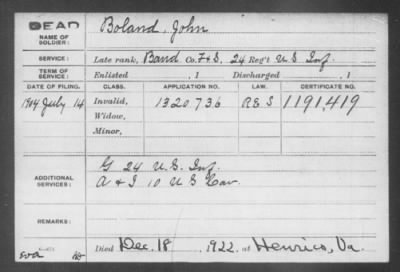 DEAD
NAME OF SOLDIER: Boland, John
SERVICE: Late rank, Band Co. F & S, 24 Reg't U S Inf.
TERM OF SERVICE: Enlisted , 1 Discharged , 1
DATE OF FILING. CLASS. APPLICATION NO. LAW. CERTIFICATE NO.
1904 July 14 Invalid, 1320736 R & S 1191,419
Widow,
Minor,
ADDITIONAL SERVICES: G 24 U.S. Inf.
A & I 10 U S Cav.
REMARKS:
Died Dec. 18, 1922, at Henrico, Va.